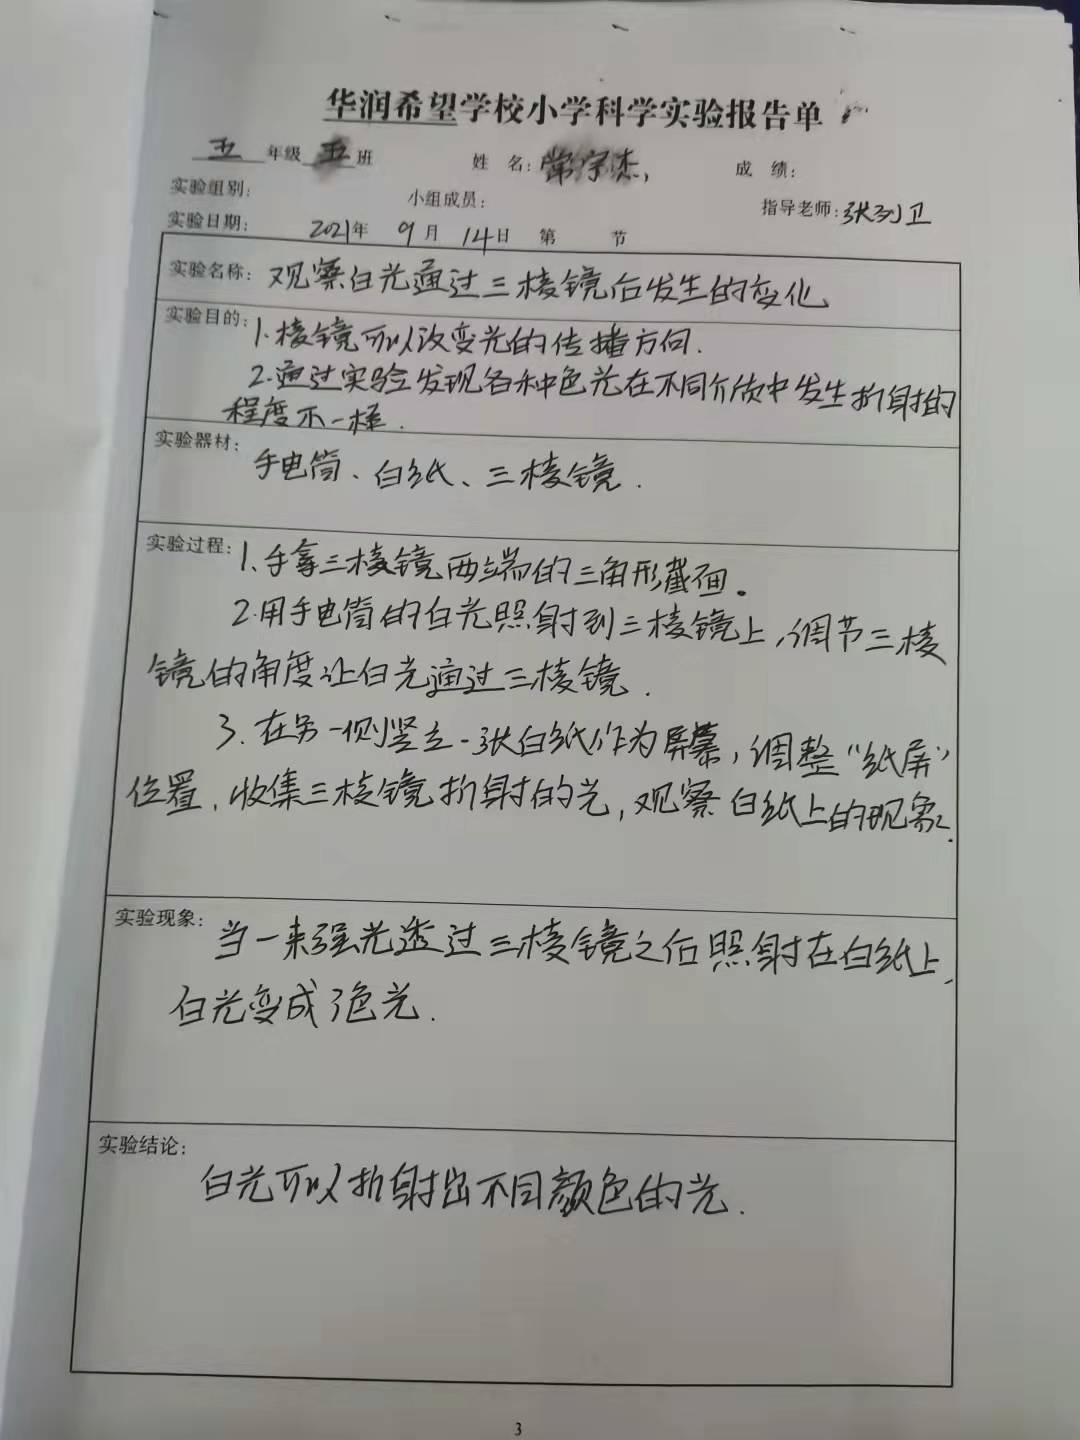 华润希望学校小学科学实验报告单
五年级五班 姓名:常宇杰, 成绩:
实验组别: 小组成员: 指导老师:张列卫
实验日期: 2021年 9月 14日 第 节
实验名称: 观察白光通过三棱镜后发生的变化
实验目的: 1.棱镜可以改变光的传播方向.
2.通过实验发现各种色光在不同介质中发生折射的
程度不一样.
实验器材: 手电筒、白纸、三棱镜.
实验过程: 1.手拿三棱镜两端的三角形截面。
2.用手电筒的白光照射到三棱镜上,调节三棱
镜的角度让白光通过三棱镜.
3.在另一侧竖立一张白纸作为屏幕,调整“纸屏”
位置,收集三棱镜折射的光,观察白纸上的现象.
实验现象: 当一束强光透过三棱镜之后照射在白纸上,
白光变成了色光.
实验结论:
白光可以折射出不同颜色的光.
3